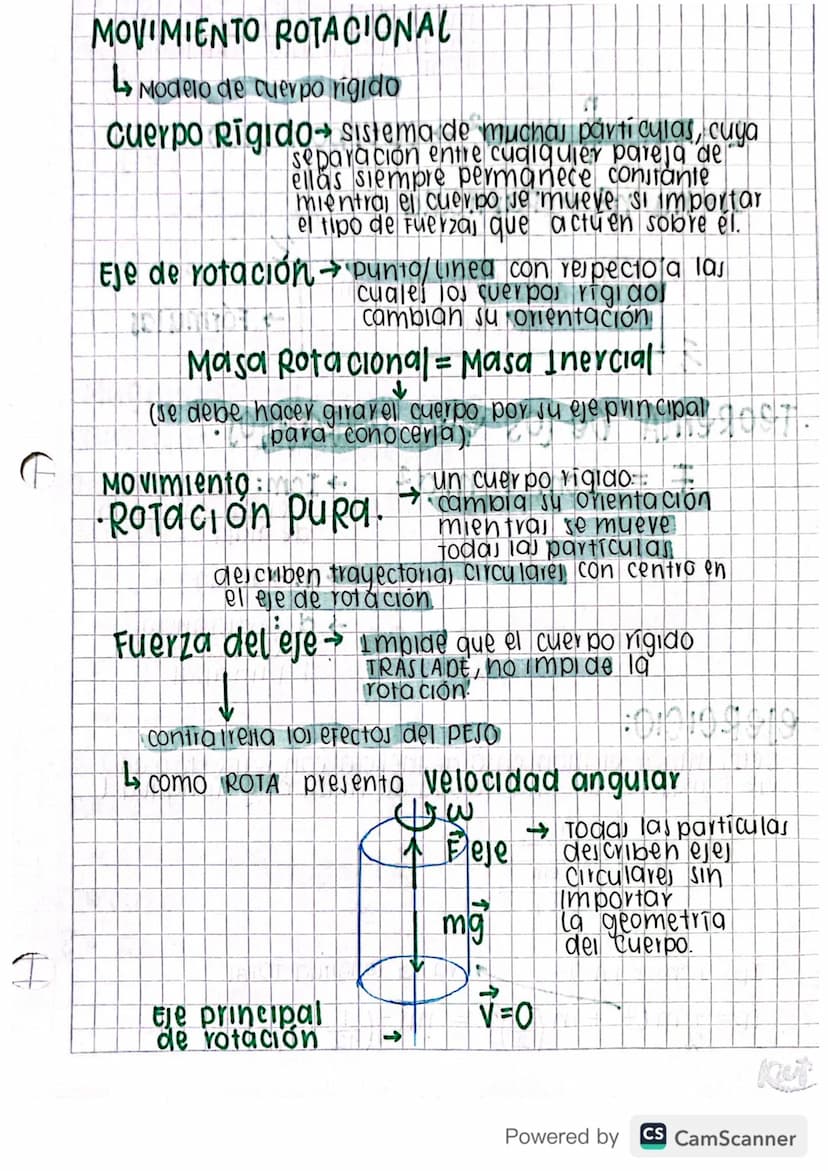 MOVIMIENTO ROTACIONAL
↳ Modelo de cuerpo rígido
Cuerpo Rígido → sistema de muchas partículas, cuya
separación entre cualquier pareja de
ellas siempre permanece constante
mientras el cuerpo se mueve si importar
el tipo de fuerzas que actúen sobre él.
Eje de rotación → punto/línea con respecto a las
cuales los cuerpos rígidos
cambian su orientación
Masa Rotacional = Masa Inercial
(se debe hacer girar el cuerpo por su eje principal
para conocerla)
Movimiento:
· ROTACIÓN PURA. → un cuerpo rígido
cambia su orientación
mientras se mueve
todas las partículas
describen trayectorias circulares con centro en
el eje de rotación
Fuerza del eje → Impide que el cuerpo rígido
TRASLADE, no impide la
rotación.
contrarresta los efectos del PESO
↳ como ROTA presenta velocidad angular
ω
F eje
→ Todas las partículas
describen ejes
circulares sin
importar
la geometría
del cuerpo.
mg
V=0
Eje principal
de rotación →
Powered by CS CamScanner